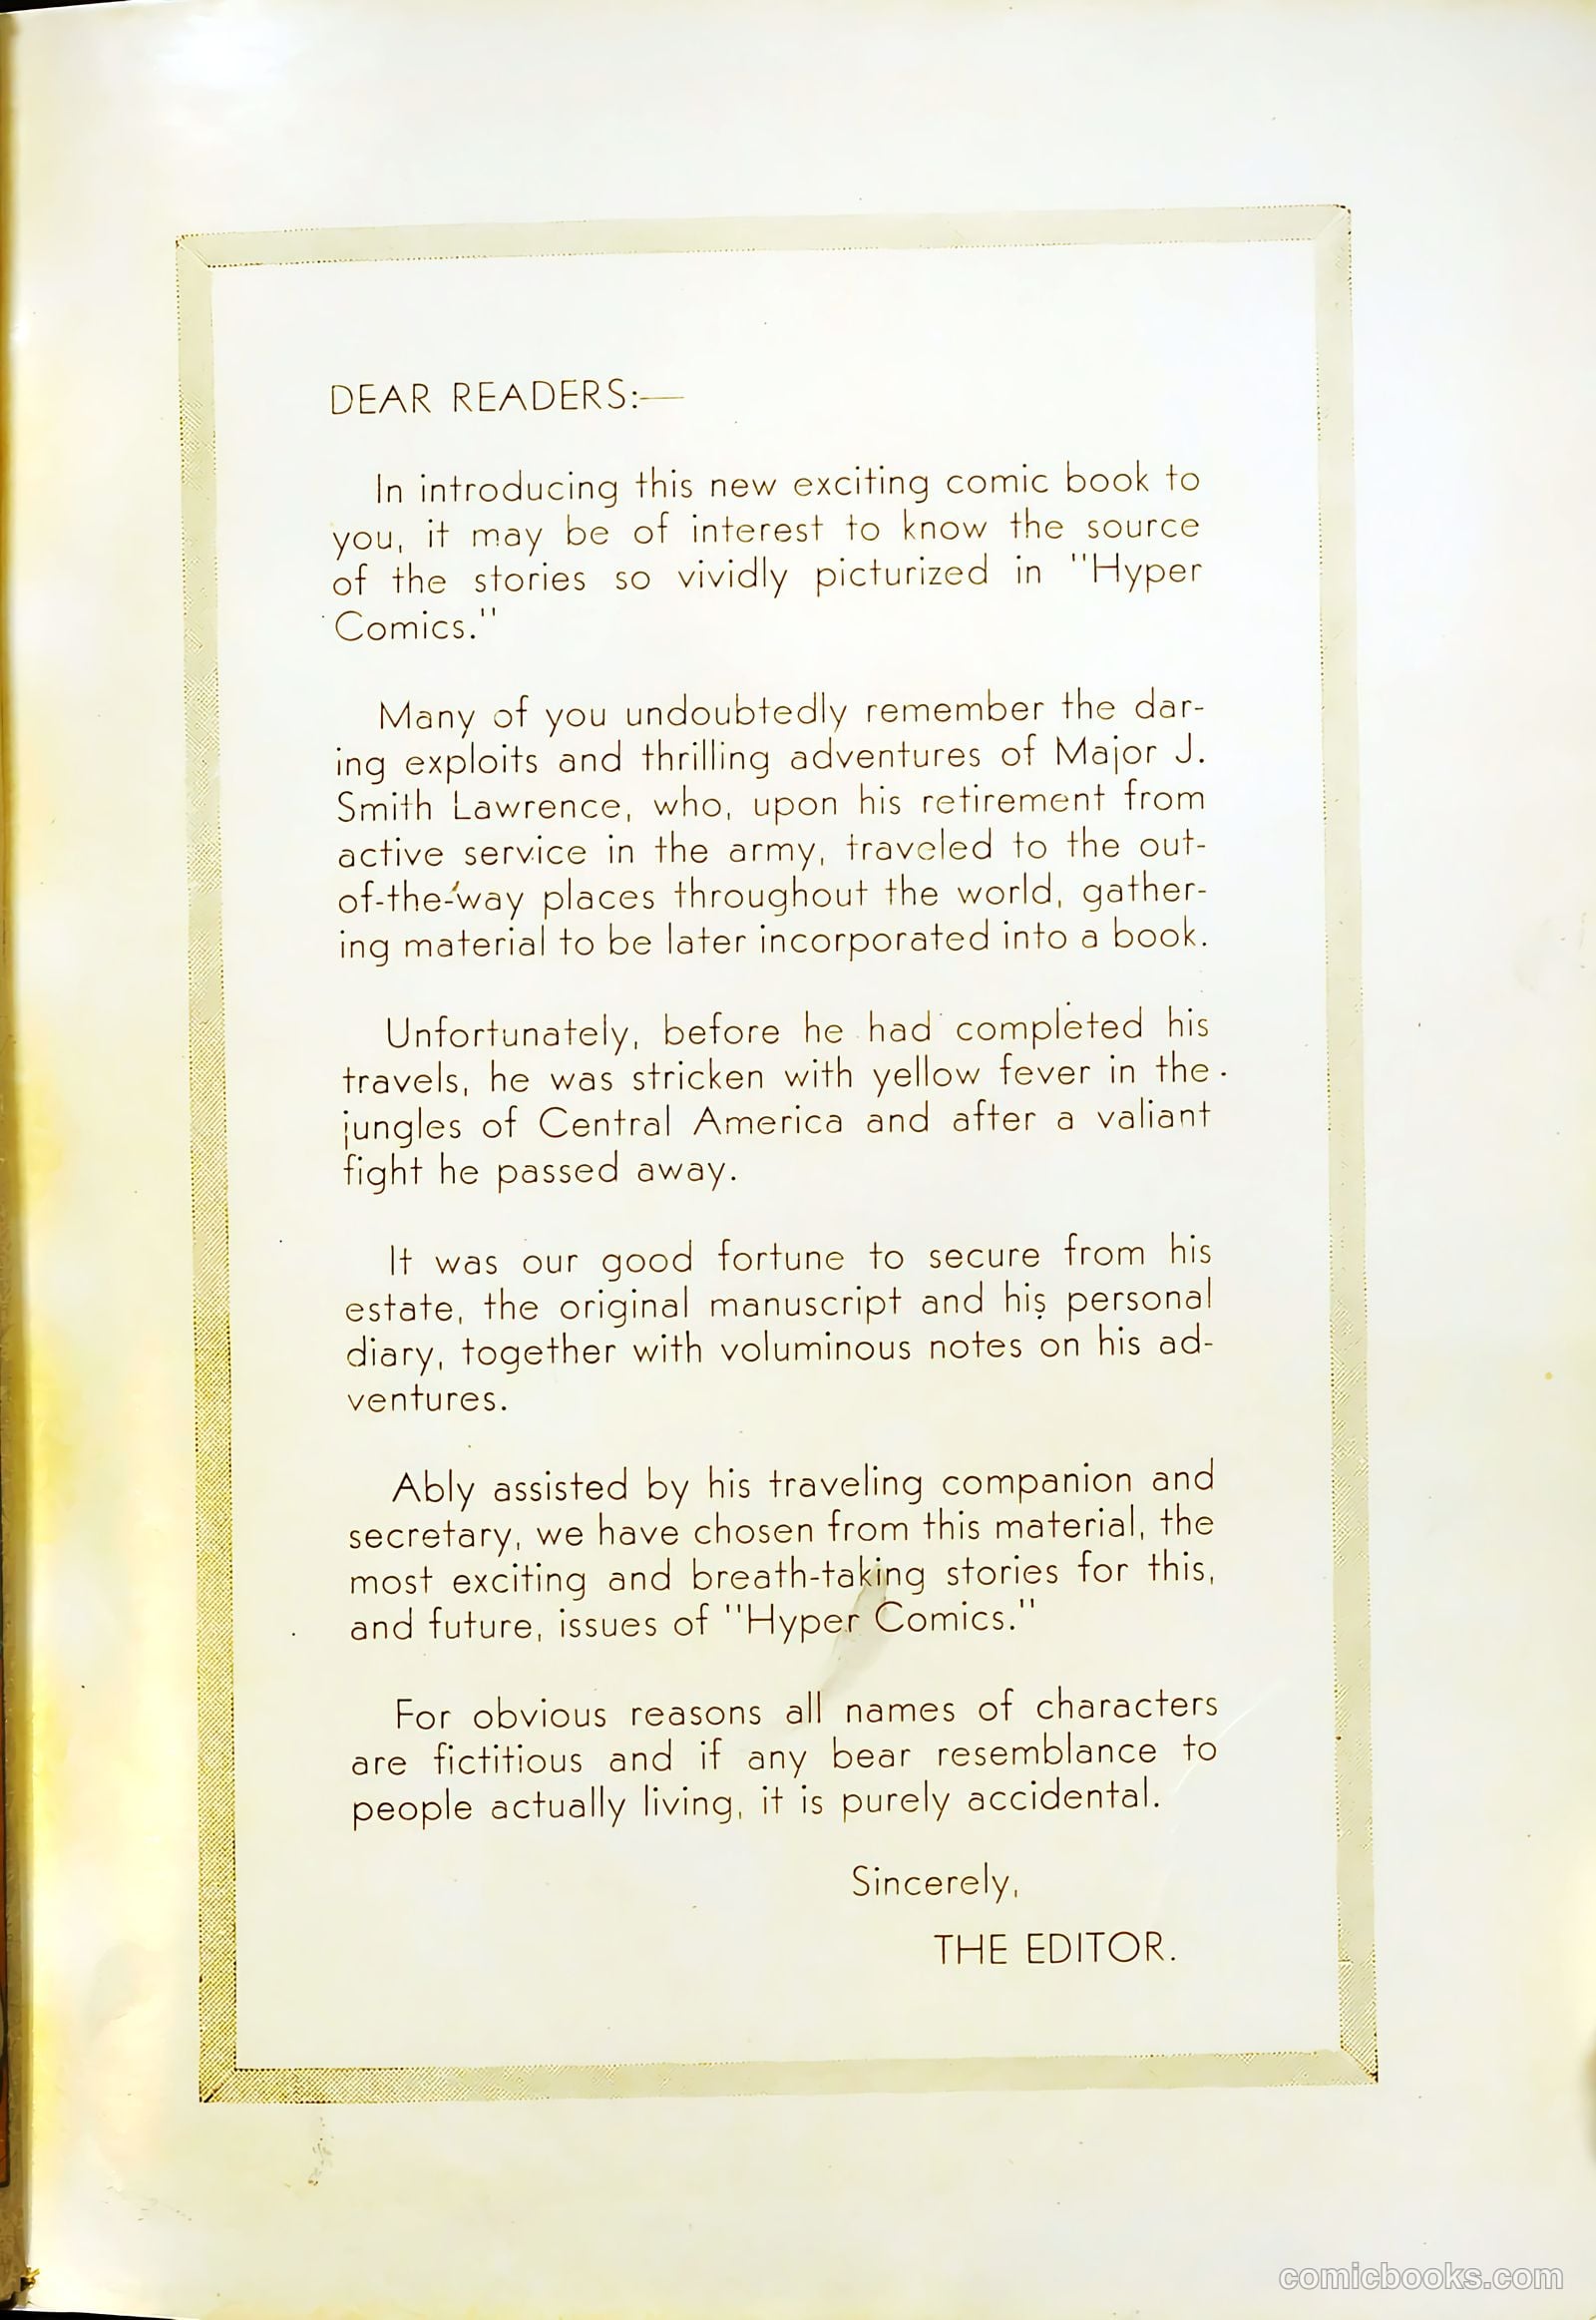 DEAR READERS:—
In introducing this new exciting comic book to
you, it may be of interest to know the source
of the stories so vividly picturized in "Hyper
Comics."
Many of you undoubtedly remember the dar-
ing exploits and thrilling adventures of Major J.
Smith Lawrence, who, upon his retirement from
active service in the army, traveled to the out-
of-the-way places throughout the world, gather-
ing material to be later incorporated into a book.
Unfortunately, before he had completed his
travels, he was stricken with yellow fever in the
jungles of Central America and after a valiant
fight he passed away.
It was our good fortune to secure from his
estate, the original manuscript and his personal
diary, together with voluminous notes on his ad-
ventures.
Ably assisted by his traveling companion and
secretary, we have chosen from this material, the
most exciting and breath-taking stories for this,
and future, issues of "Hyper Comics."
For obvious reasons all names of characters
are fictitious and if any bear resemblance to
people actually living, it is purely accidental.
Sincerely,
THE EDITOR.
comicbooks.com